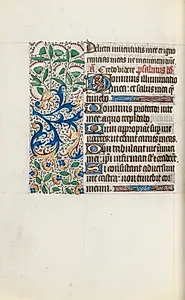 Delicta iuuentutis mee et igno
rancias meas ne
Credo videre psalmus
Dominus illuminatio
mea: et salus mea
timebo
Dominus protector vite
mee: a quo trepidabo
Dum appropiant super me
nocentes: ut edant carnes meas
Qui tribulant me inimici
mei: ipsi infirmati sunt et
Si consistant aduersum
me castra: non timebit cor
meum